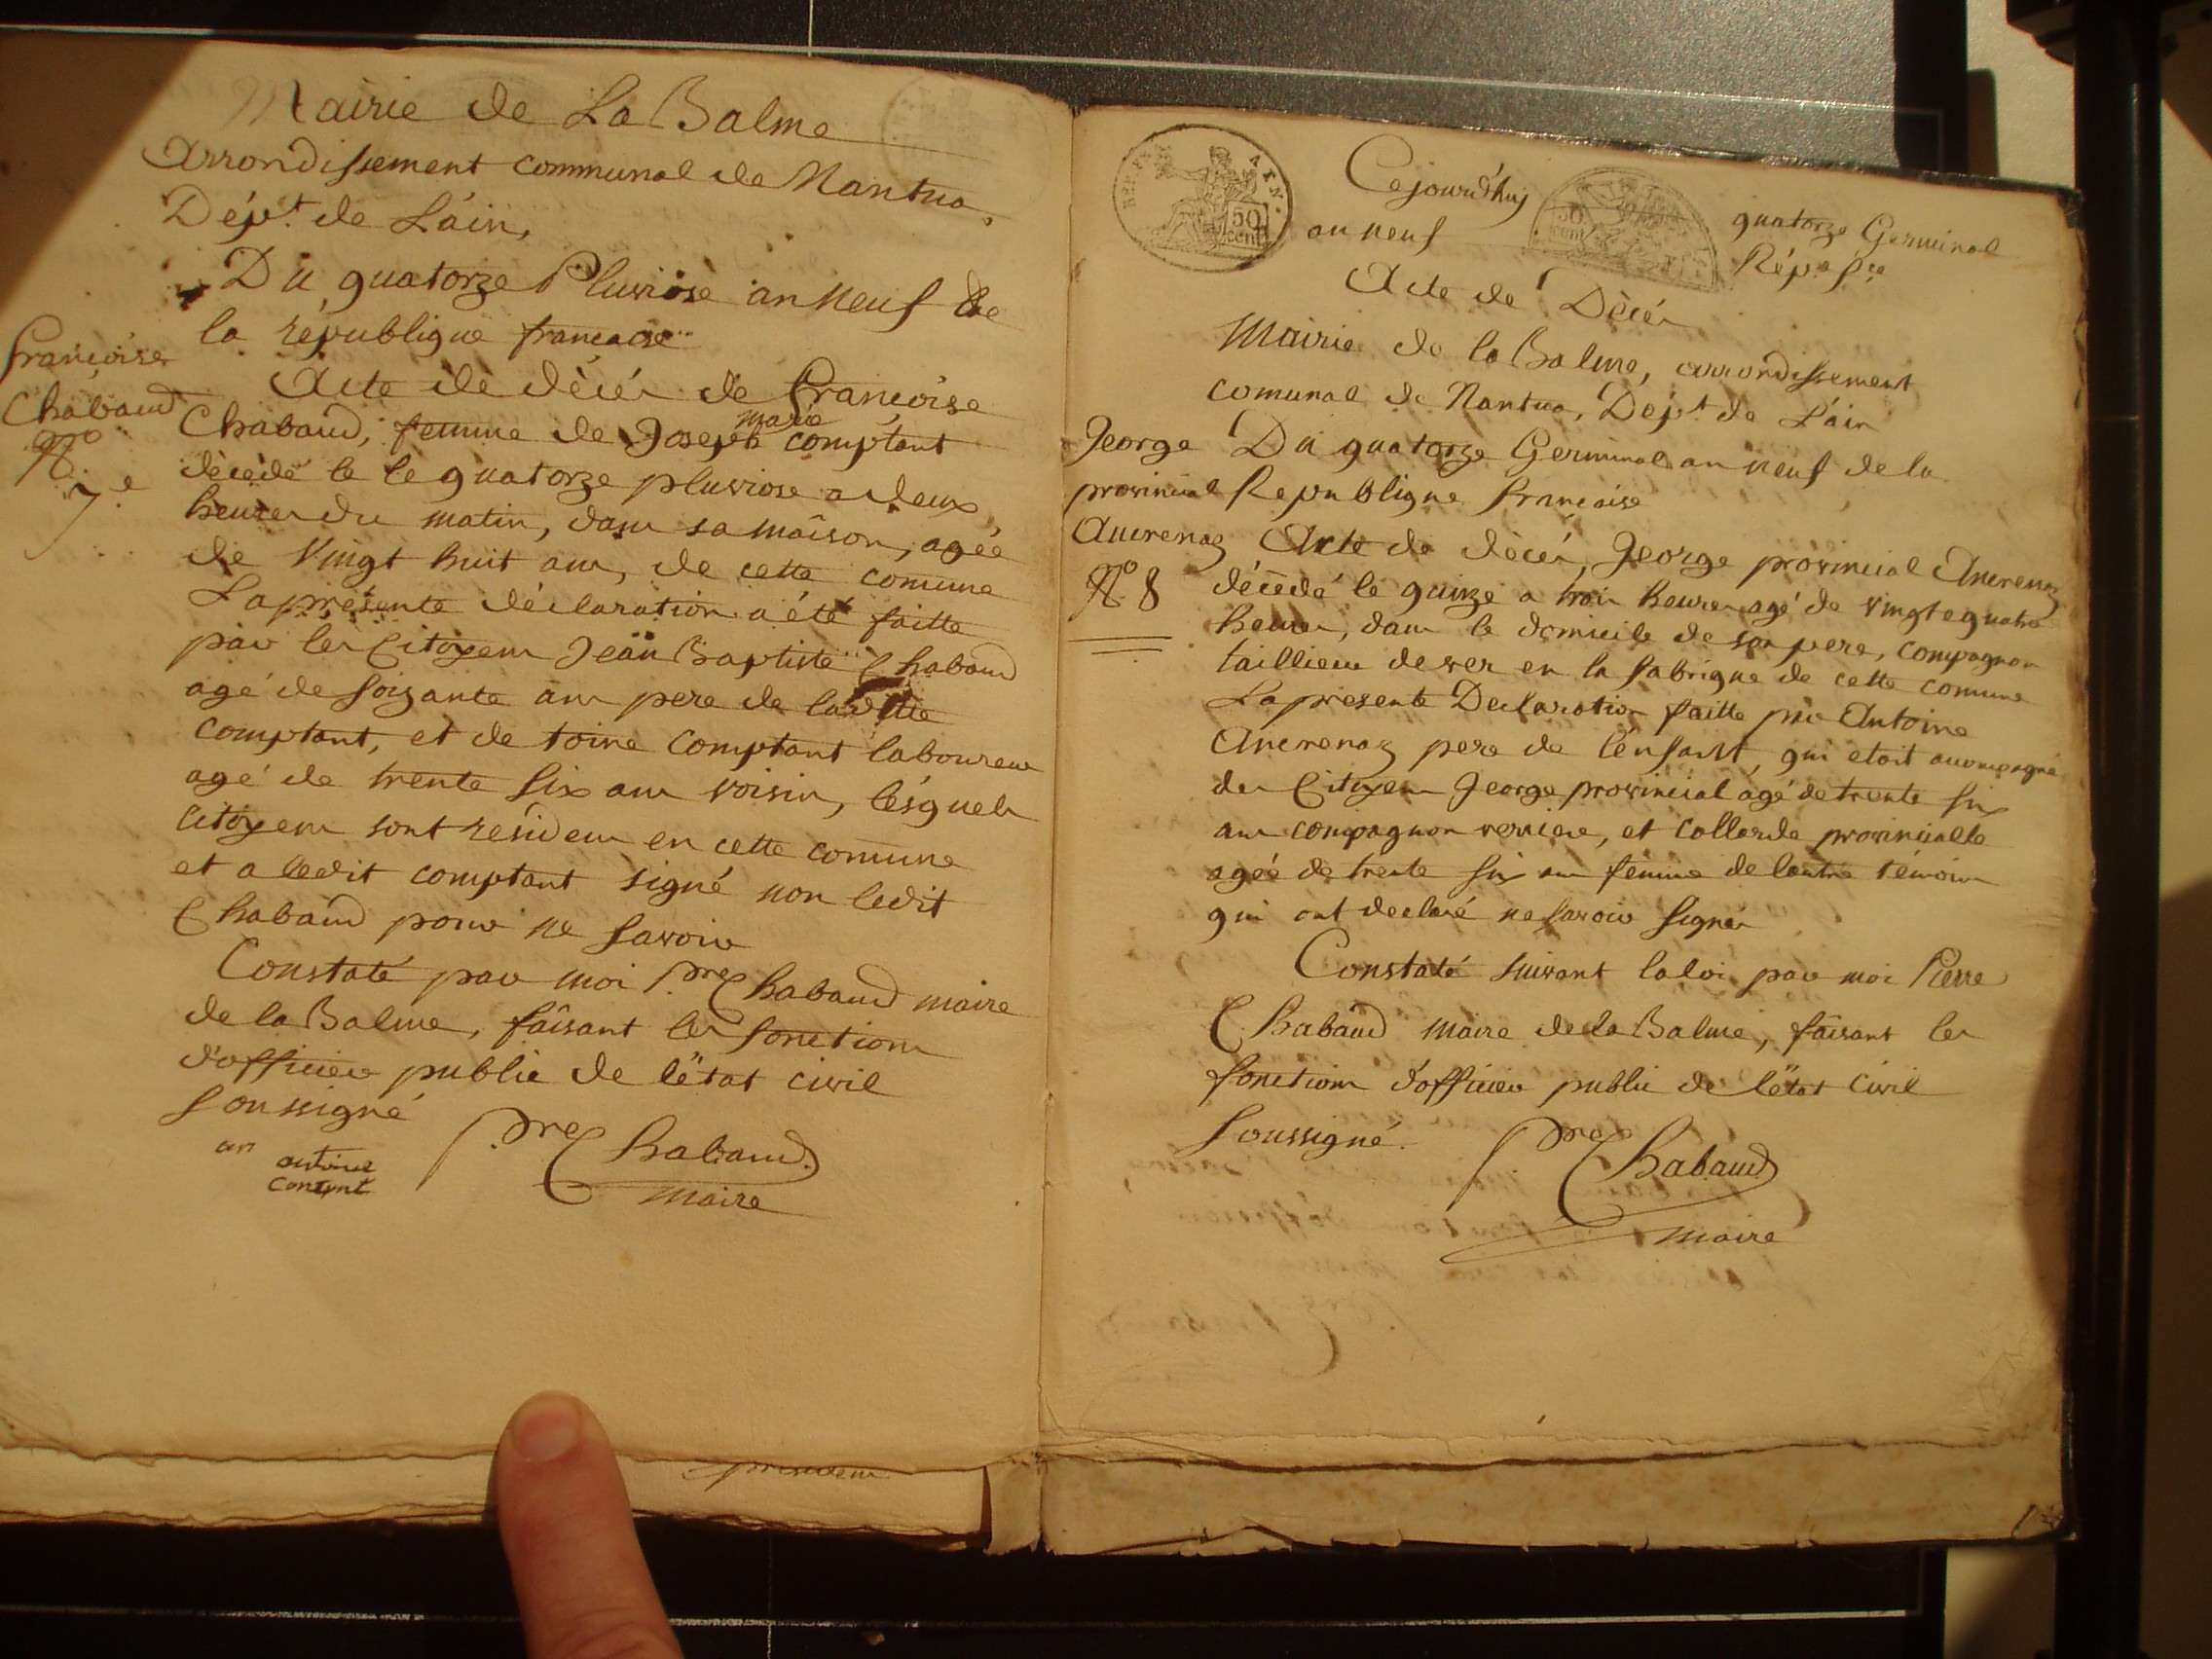 Mairie de La Balme
Arrondissement communal de Nantua,
Dépt. de L'ain,
Du quatorze Pluviose an neuf de
la république française
Françoise
Chabaud
No
7e
Acte de décés de françoise
Chabaud, femme de Joseph marie comptant
décédé le le quatorze pluviose a deux
heures du matin, dans sa maison, agée
de Vingt huit ans, de cette comune
La présente déclaration a été faitte
par les Citoyens Jean Baptiste Chabaud
agé de soixante ans pere de laditte
comptant, et de toine comptant laboureur
agé de trente six ans voisin, lésquels
citoyens sont résidens en cette comune
et a ledit comptant signé non ledit
Chabaud pour ne savoir
Constaté par moi Pre Chabaud maire
de la Balme, faisant les fonctions
d'officier public de l'état civil
soussigné
an antoine
Pre Chabaud
maire
présidens
REP. FRA.
AIN.
50
cent
Cejourd'huy quatorze Germinal
an neuf
50
cent
Acte de Décés
Mairie de la Balme, arrondissement
comunal de Nantua, Dépt de L'ain
George
provincial
Ancrenaz
No 8
Du quatorze Germinal an neuf de la
Republique française
Acte de décés, George provincial Ancrenaz
décédé le quinze a trois heures agé de vingt e quatre
heures, dans le domicile de son pere, compagnon
taillieur de ver en la fabrique de cette comune
La presente Declaration faitte par Antoine
Ancrenaz pere de l'enfant, qui etoit accompagné
des Citoyens George provincial agé de trente six
ans compagnon verriere, et collarde provincialle
agée de trente six ans femme de lautre témoins
qui ont declaré ne savoir signer
Constaté suivant la loi par moi Pierre
Chabaud maire de la Balme, faisant les
fonctions d'officier public de l'état Civil
soussigné.
Pre Chabaud
maire